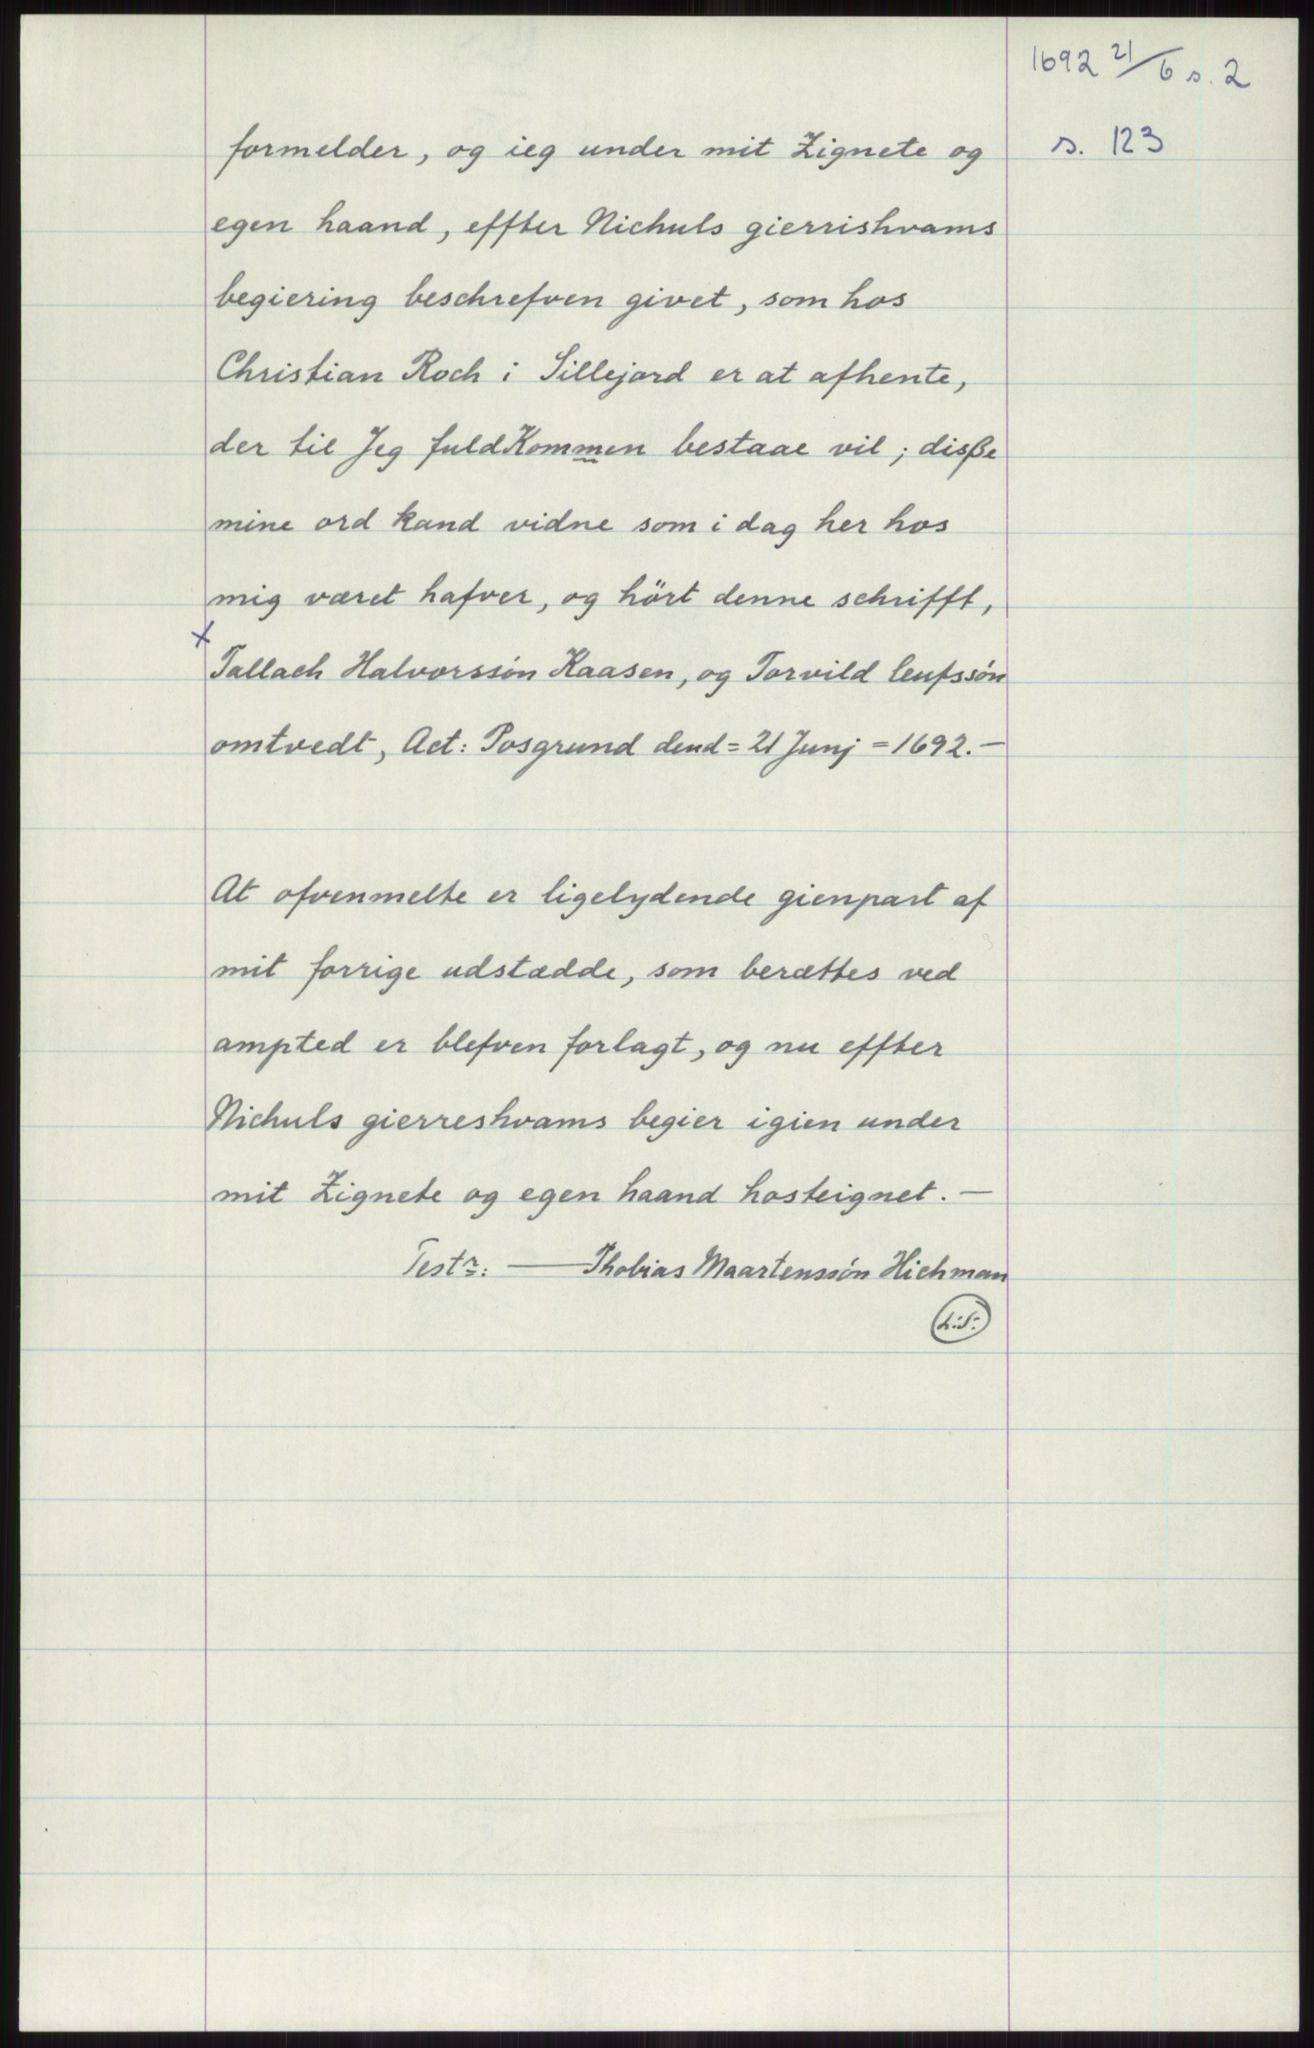 1692 21/6 s. 2
s. 123
formelder, og ieg under mit Zignete og
egen haand, effter Nichuls gierrishvams
begiering beschrefven givet, som hos
Christian Roch i Sillejord er at afhente,
der til Jeg fuldKommen bestaae vil; disße
mine ord kand vidne som i dag her hos
mig været hafver, og hört denne schrifft,
x
Tallach Halvorssón Kaasen, og Torvild leufssón
omtvedt, Act: Posgrund dend= 21 Junj =1692.—
At ofvenmelte er ligelydende gienpart af
mit forrige udstædde, som berættes ved
ampted er blefven forlagt, og nu effter
Nichuls gierreshvams begier igien under
mit Zignete og egen haand hosteignet. —
Testr: — Thobias Maartenssón Hichman
L:S: